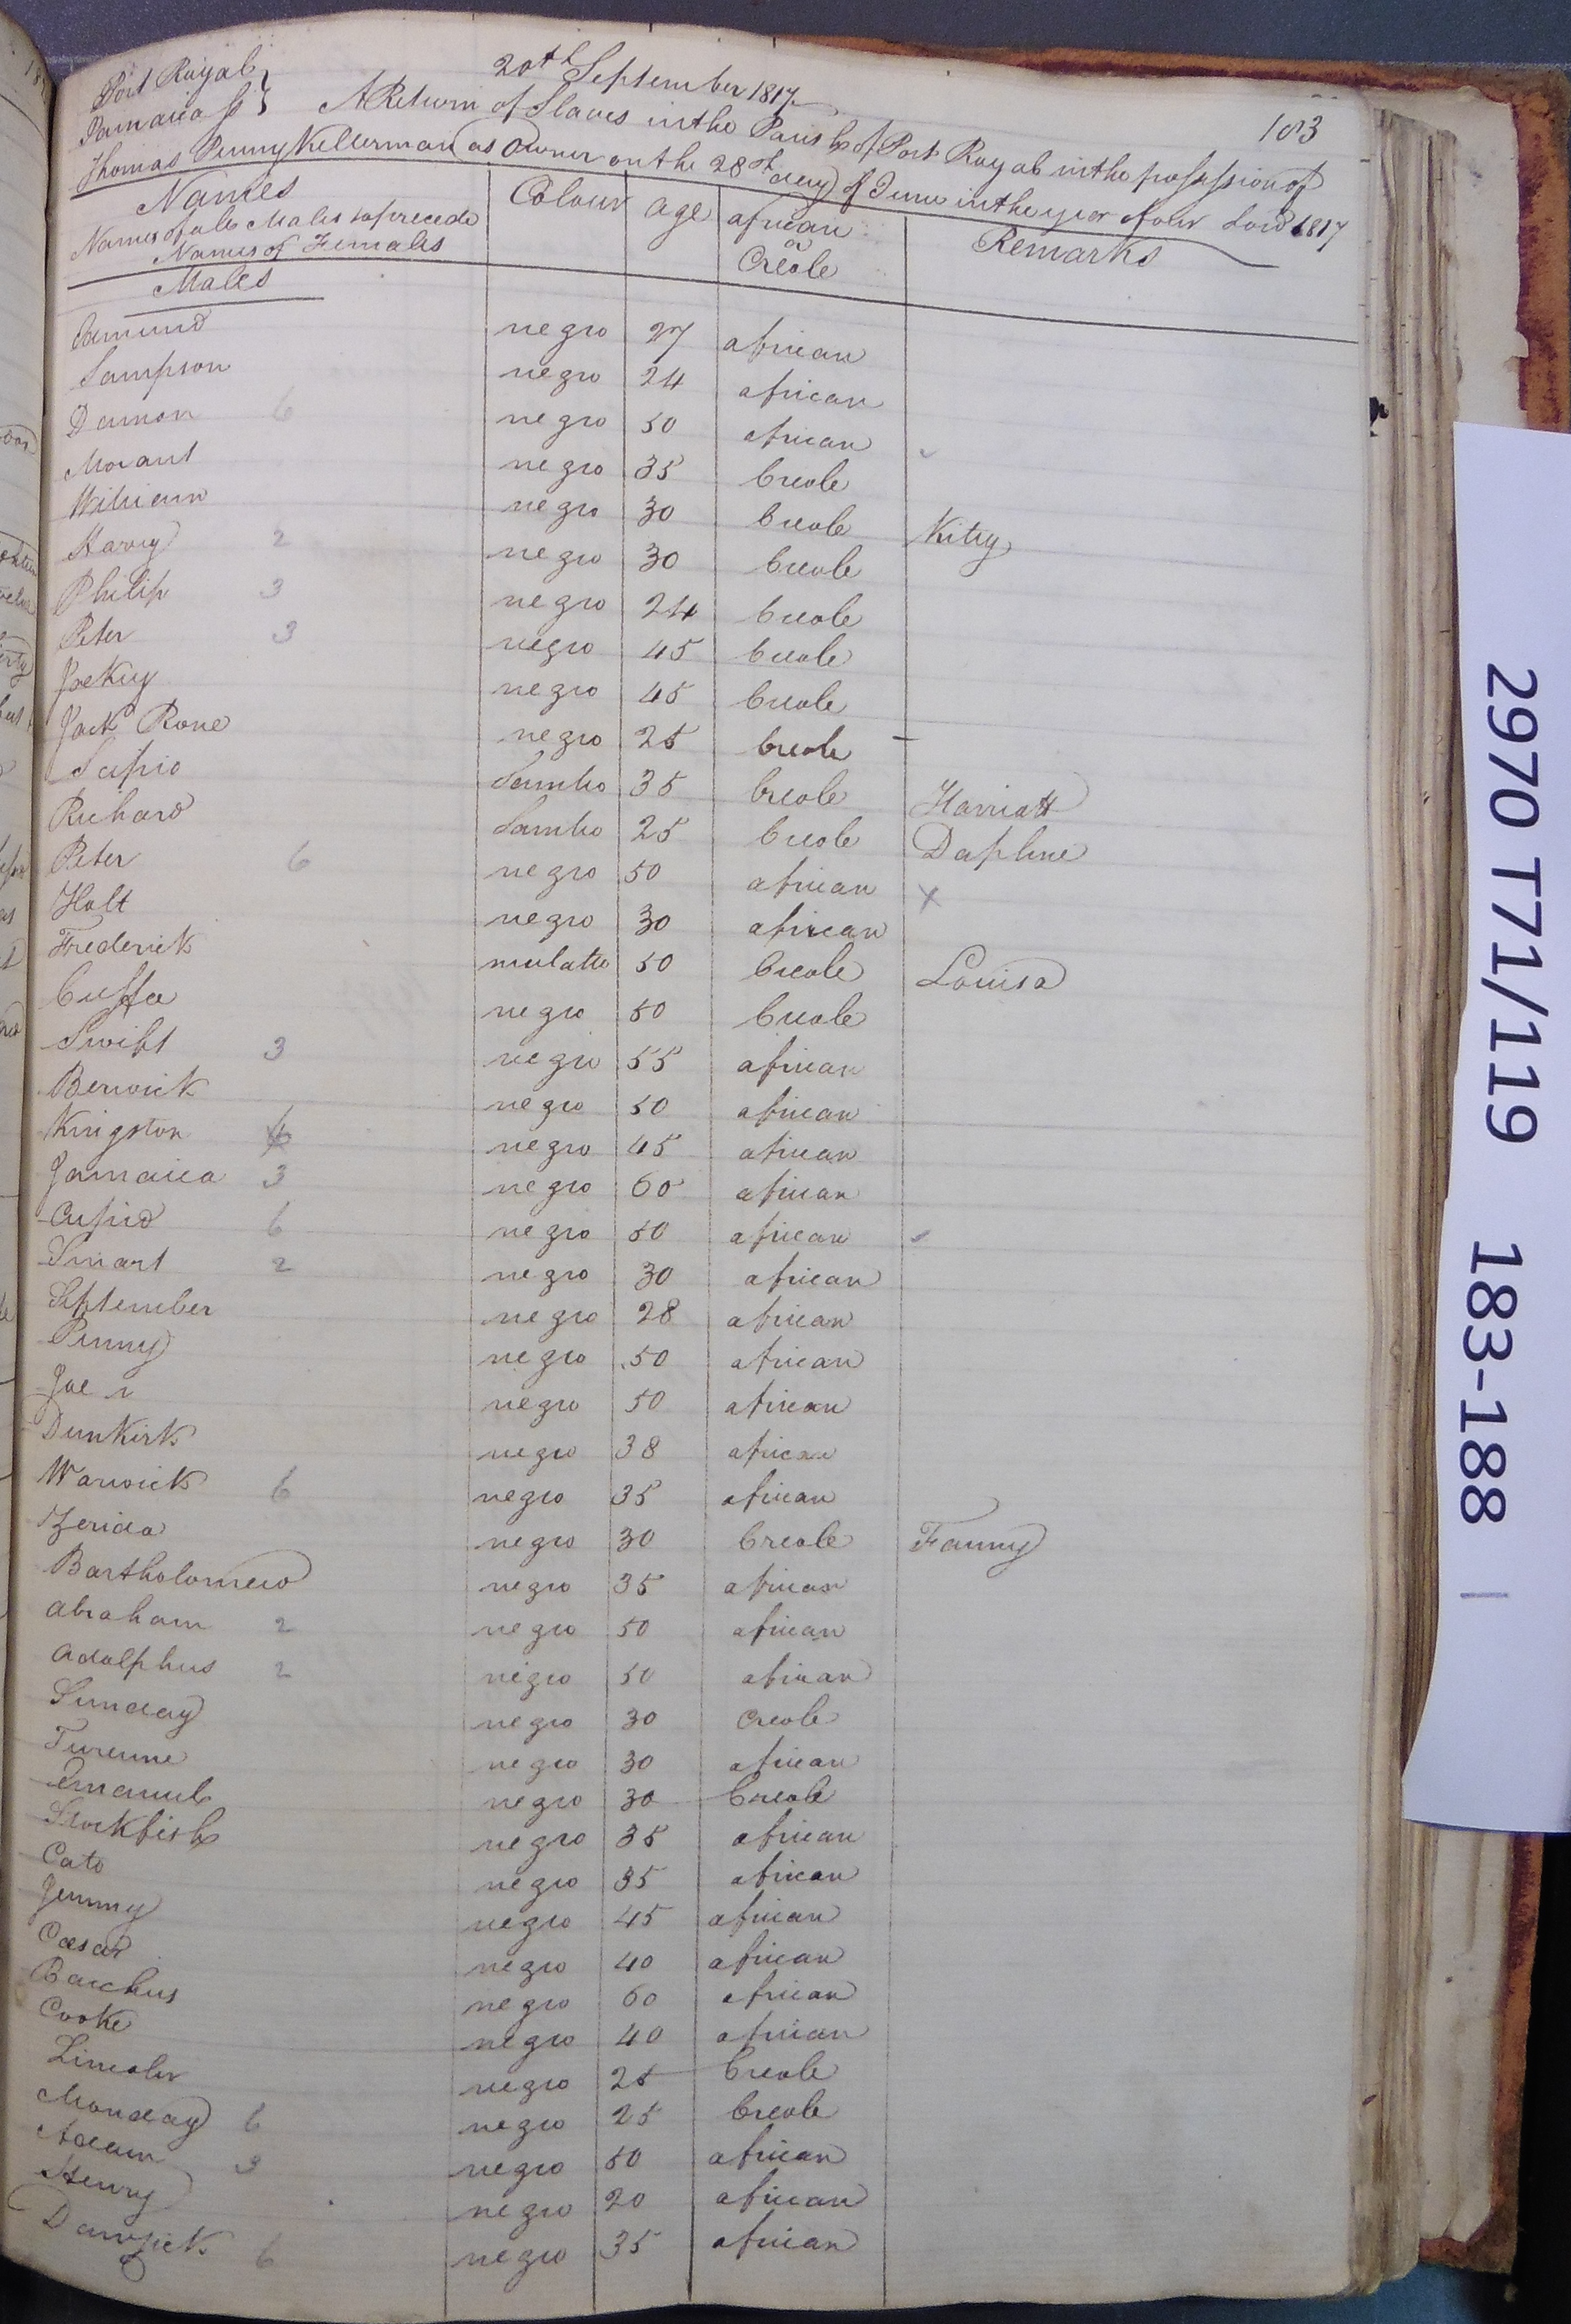 183
Port Royal
Jamaica Ss
20th September 1817
A Return of Slaves in the Parish of Port Royal in the possession of
Thomas Penny Kellerman as Owner on the 28th day of June in the year of our Lord 1817
Names Colour age african or Creole Remarks
Names of all Males to precede
Names of Females
Males
Edmund negro 27 african
Sampson negro 24 african
Damon 6 negro 50 african
Morant negro 35 Creole
William negro 30 Creole Kitty
Harry 2 negro 30 Creole
Philip 3 negro 24 Creole
Peter 3 negro 45 Creole
Jockey negro 45 Creole
Jack Rone negro 25 Creole
Scipio Sambo 35 Creole Harriott
Richard Sambo 25 Creole Daphne
Peter 6 negro 50 african x
Holt negro 30 african
Frederick mulatto 50 Creole Louisa
Cuffee negro 50 Creole
Swift 3 negro 55 african
Berwick negro 50 african
Kingston negro 45 african
Jamaica 3 negro 60 african
Cupid 6 negro 50 african
Smart 2 negro 30 african
September negro 28 african
Penny negro 50 african
Joe negro 50 african
Dunkirk negro 38 african
Warwick 6 negro 35 african
negro 30 Creole Fanny
Bartholomew negro 35 african
Abraham 2 negro 50 african
Adolphus 2 negro 50 african
Sunday negro 30 Creole
Turenne negro 30 african
Emanuel negro 30 Creole
Stockfish negro 35 african
Cato negro 35 african
Jemmy negro 45 african
Cæsar negro 40 african
Bacchus negro 60 african
Cooke negro 40 african
Lincoln negro 25 Creole
Monday 6 negro 25 Creole
Adam 3 negro 50 african
Henry negro 20 african
6 negro 35 african
2970 T71/119 183-188 |